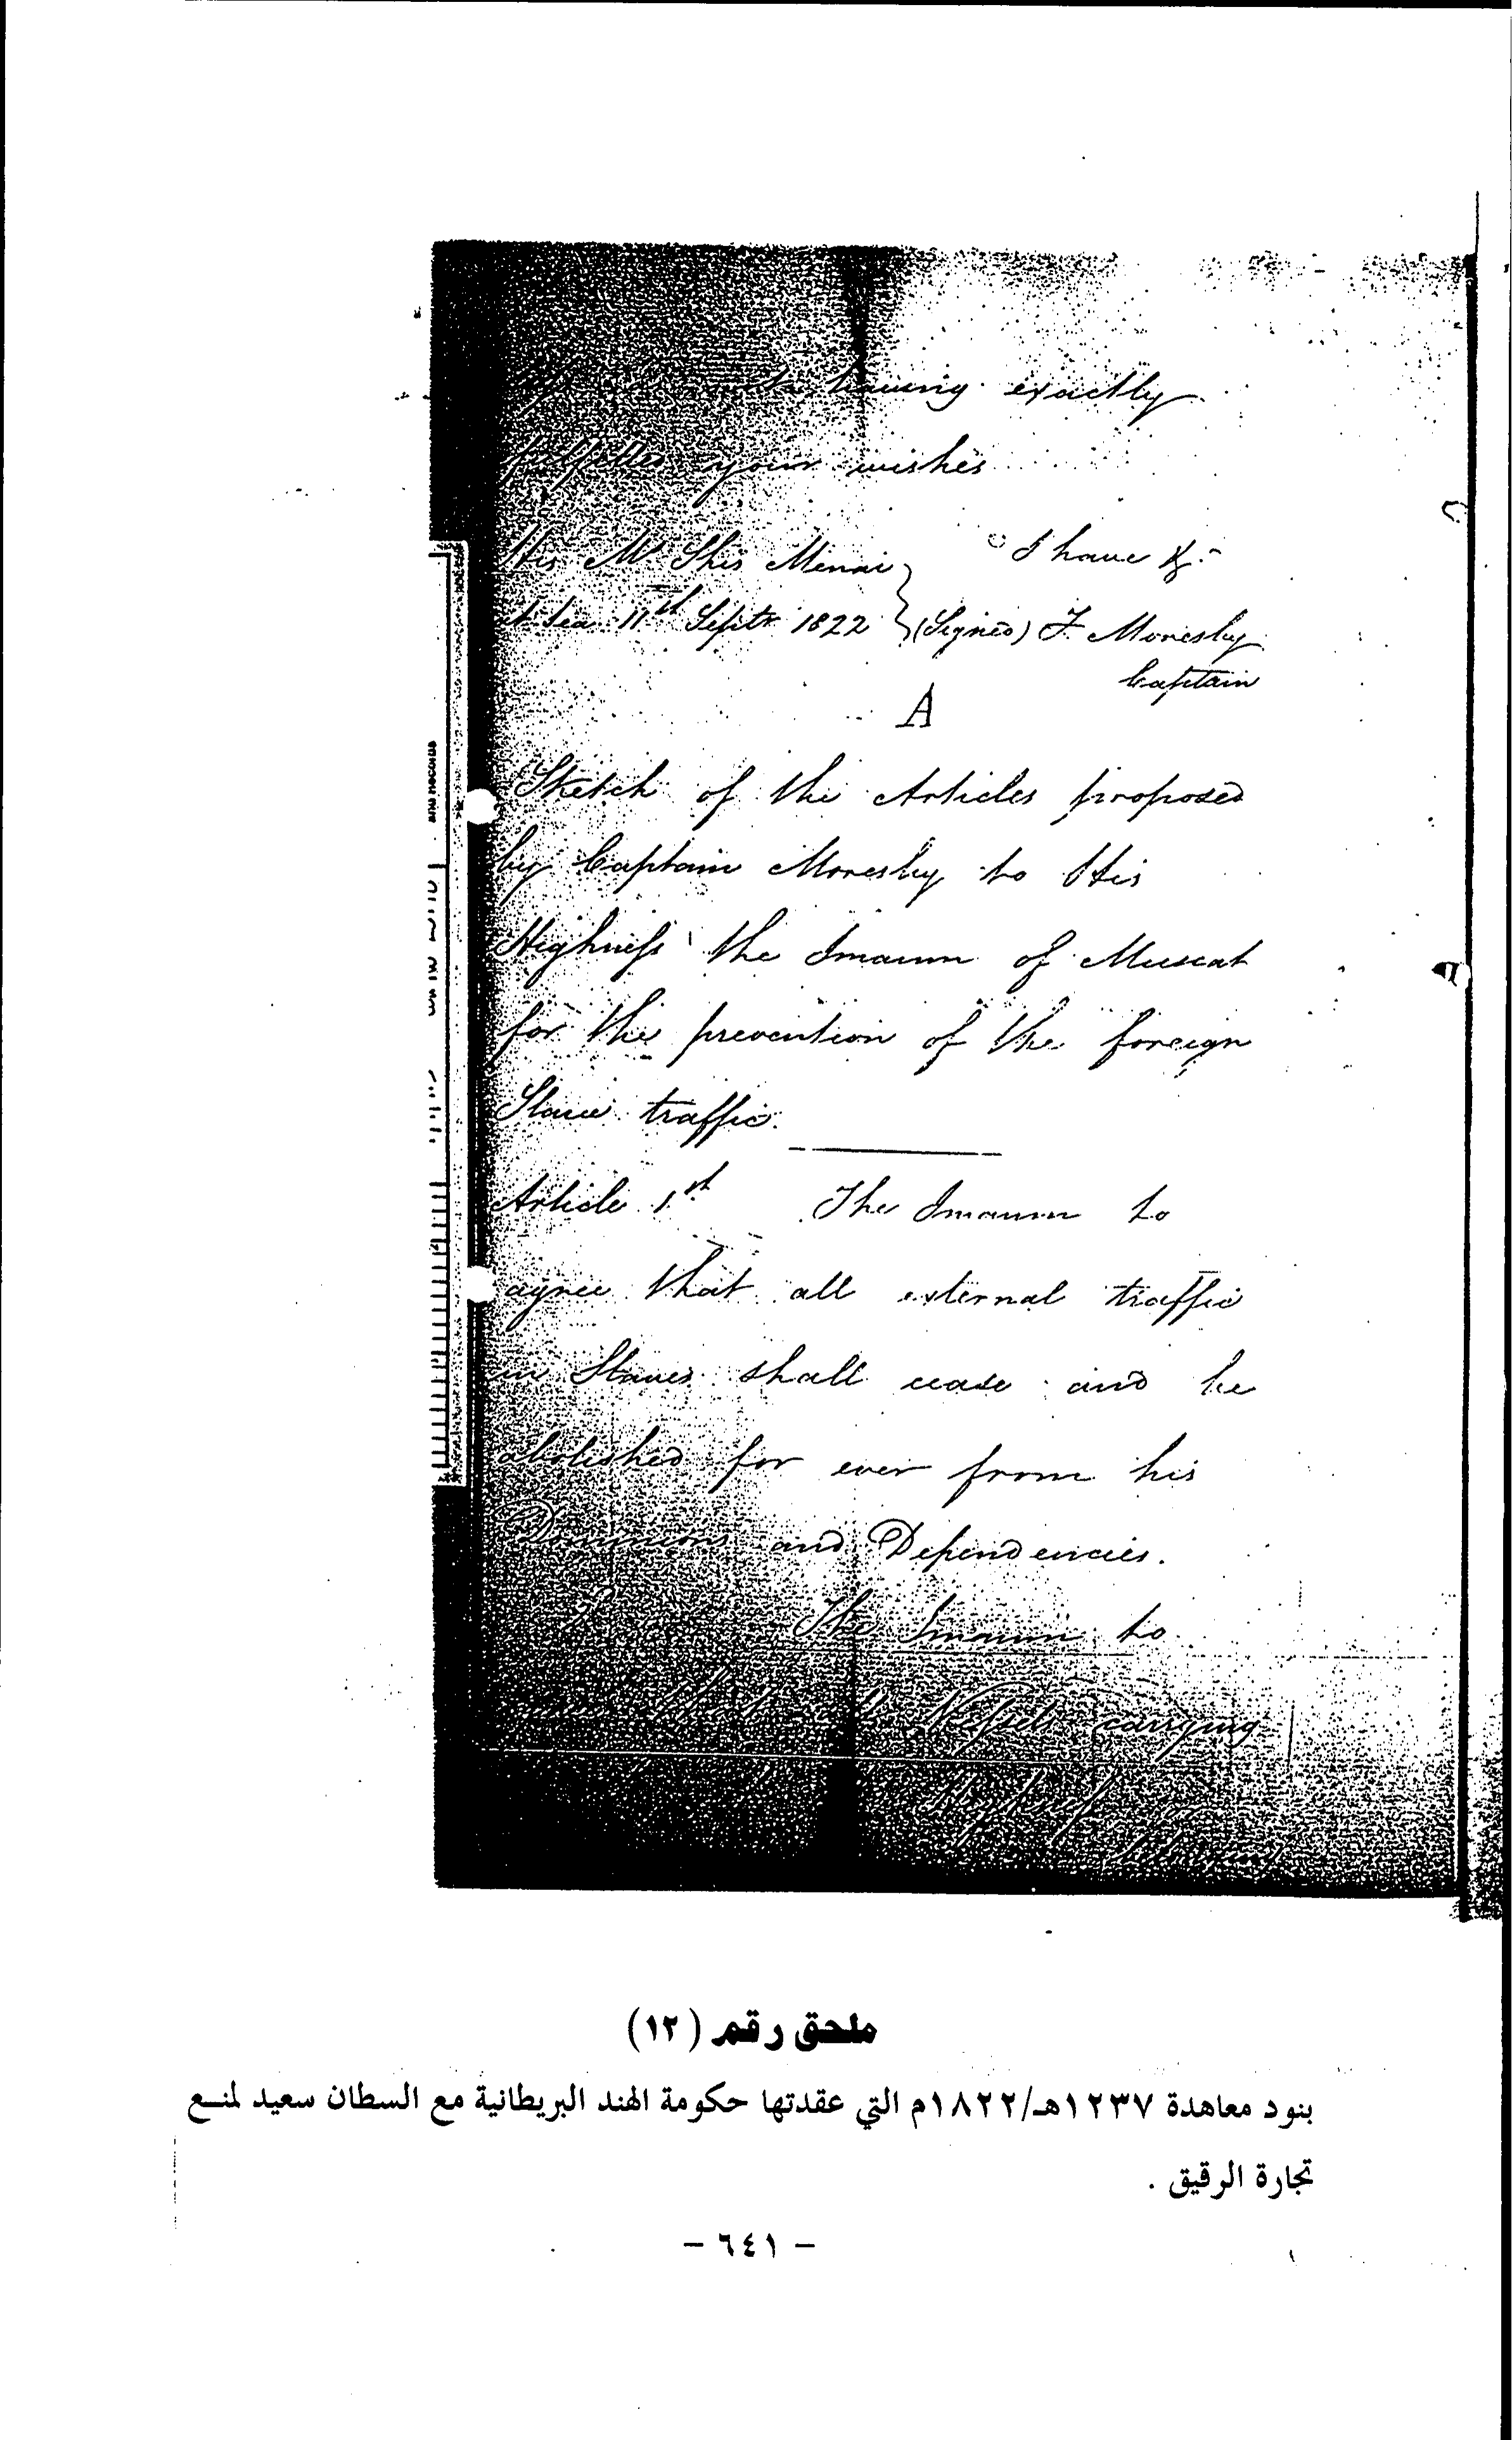 having exactly
fulfilled your wishes
I have &c
His M Ship Menai
at Sea 11th Septr 1822 (Signed) F. Moresby
Captain
A
Sketch of the Articles proposed
by Captain Moresby to His
Highness the Imaum of Muscat
for the prevention of the foreign
Slave traffic.
Article 1st The Imaum to
agree that all external traffic
in Slaves shall cease and be
abolished for ever from his
Dominions and Dependencies.
The Imaum to
Vessels carrying
ملحق رقم (١٢)
بنود معاهدة ١٢٣٧هـ/١٨٢٢م التي عقدتها حكومة الهند البريطانية مع السطان سعيد لمنع
تجارة الرقيق .
- ٦٤١ -